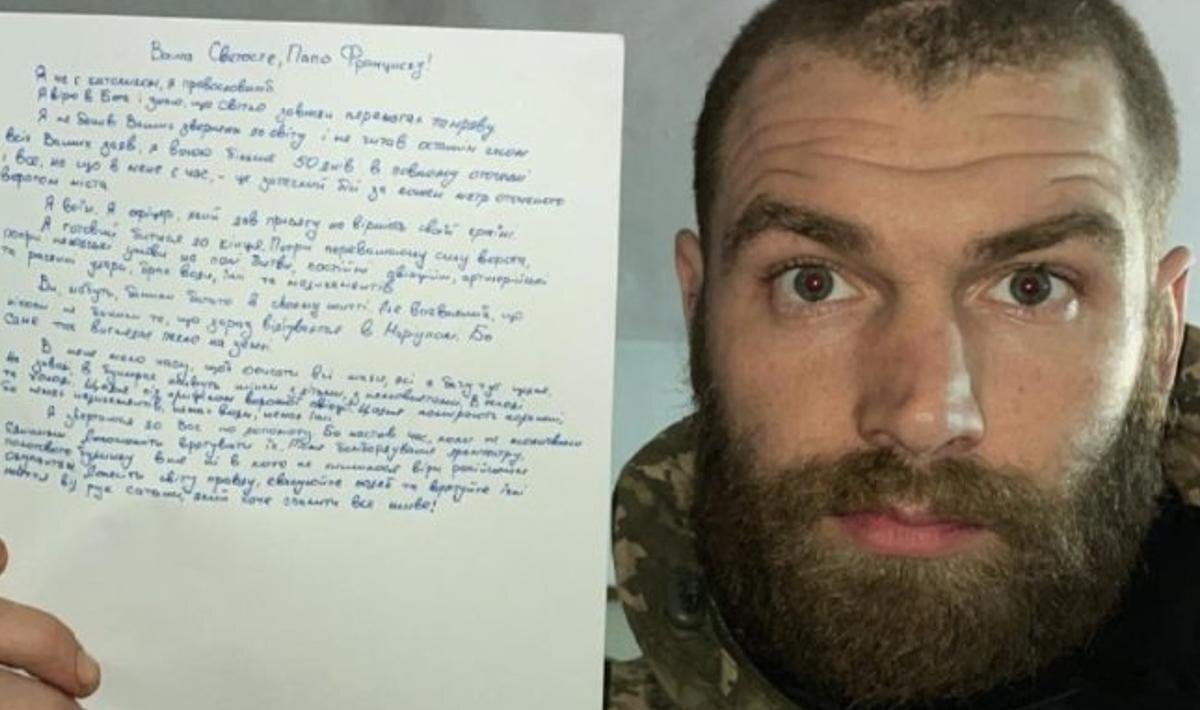 Ваша Святосте, Папо Франциску!
Я не є католиком, я православний.
Я вірю в Бога і знаю, що світло завжди перемагає темряву.
Я не бачив Ваших звернень до світу і не читав останнім часом
всіх Ваших заяв, я воюю більше 50 днів в повному оточенні
і все, на що в мене є час, - це запеклий бій за кожен метр оточеного
ворогом міста.
Я воїн. Я офіцер, який дав присягу на вірність своїй країні.
Я готовий битися до кінця. Попри переважаючу силу ворога,
попри нелюдські умови на полі битви, постійні авіаційні, артилерійські
та ракетні удари, брак води, їжі та медикаментів.
Ви, мабуть, бачили багато в своєму житті. Але впевнений, що
ніколи не бачили те, що зараз відбувається в Маріуполі. Бо
саме так виглядає пекло на землі.
В мене мало часу, щоб описати всі жахи, які я бачу тут щодня.
На заводі в бункерах живуть жінки з дітьми, з немовлятами. В голоді
та холоді. Щодня під прицілом ворожої авіації. Щодня помирають поранені,
бо немає медикаментів, немає води, немає їжі.
Я звертаюся до Вас по допомогу. Бо настав час, коли не достатньо
молитися. Допоможіть врятувати їх. Після бомбардування драмтеатру,
пологового будинку вже ні в кого не лишилося віри російським
окупантам. Донесіть світу правду, евакуюйте людей та врятуйте їхні
життя від рук сатани, який хоче спалити все живе!